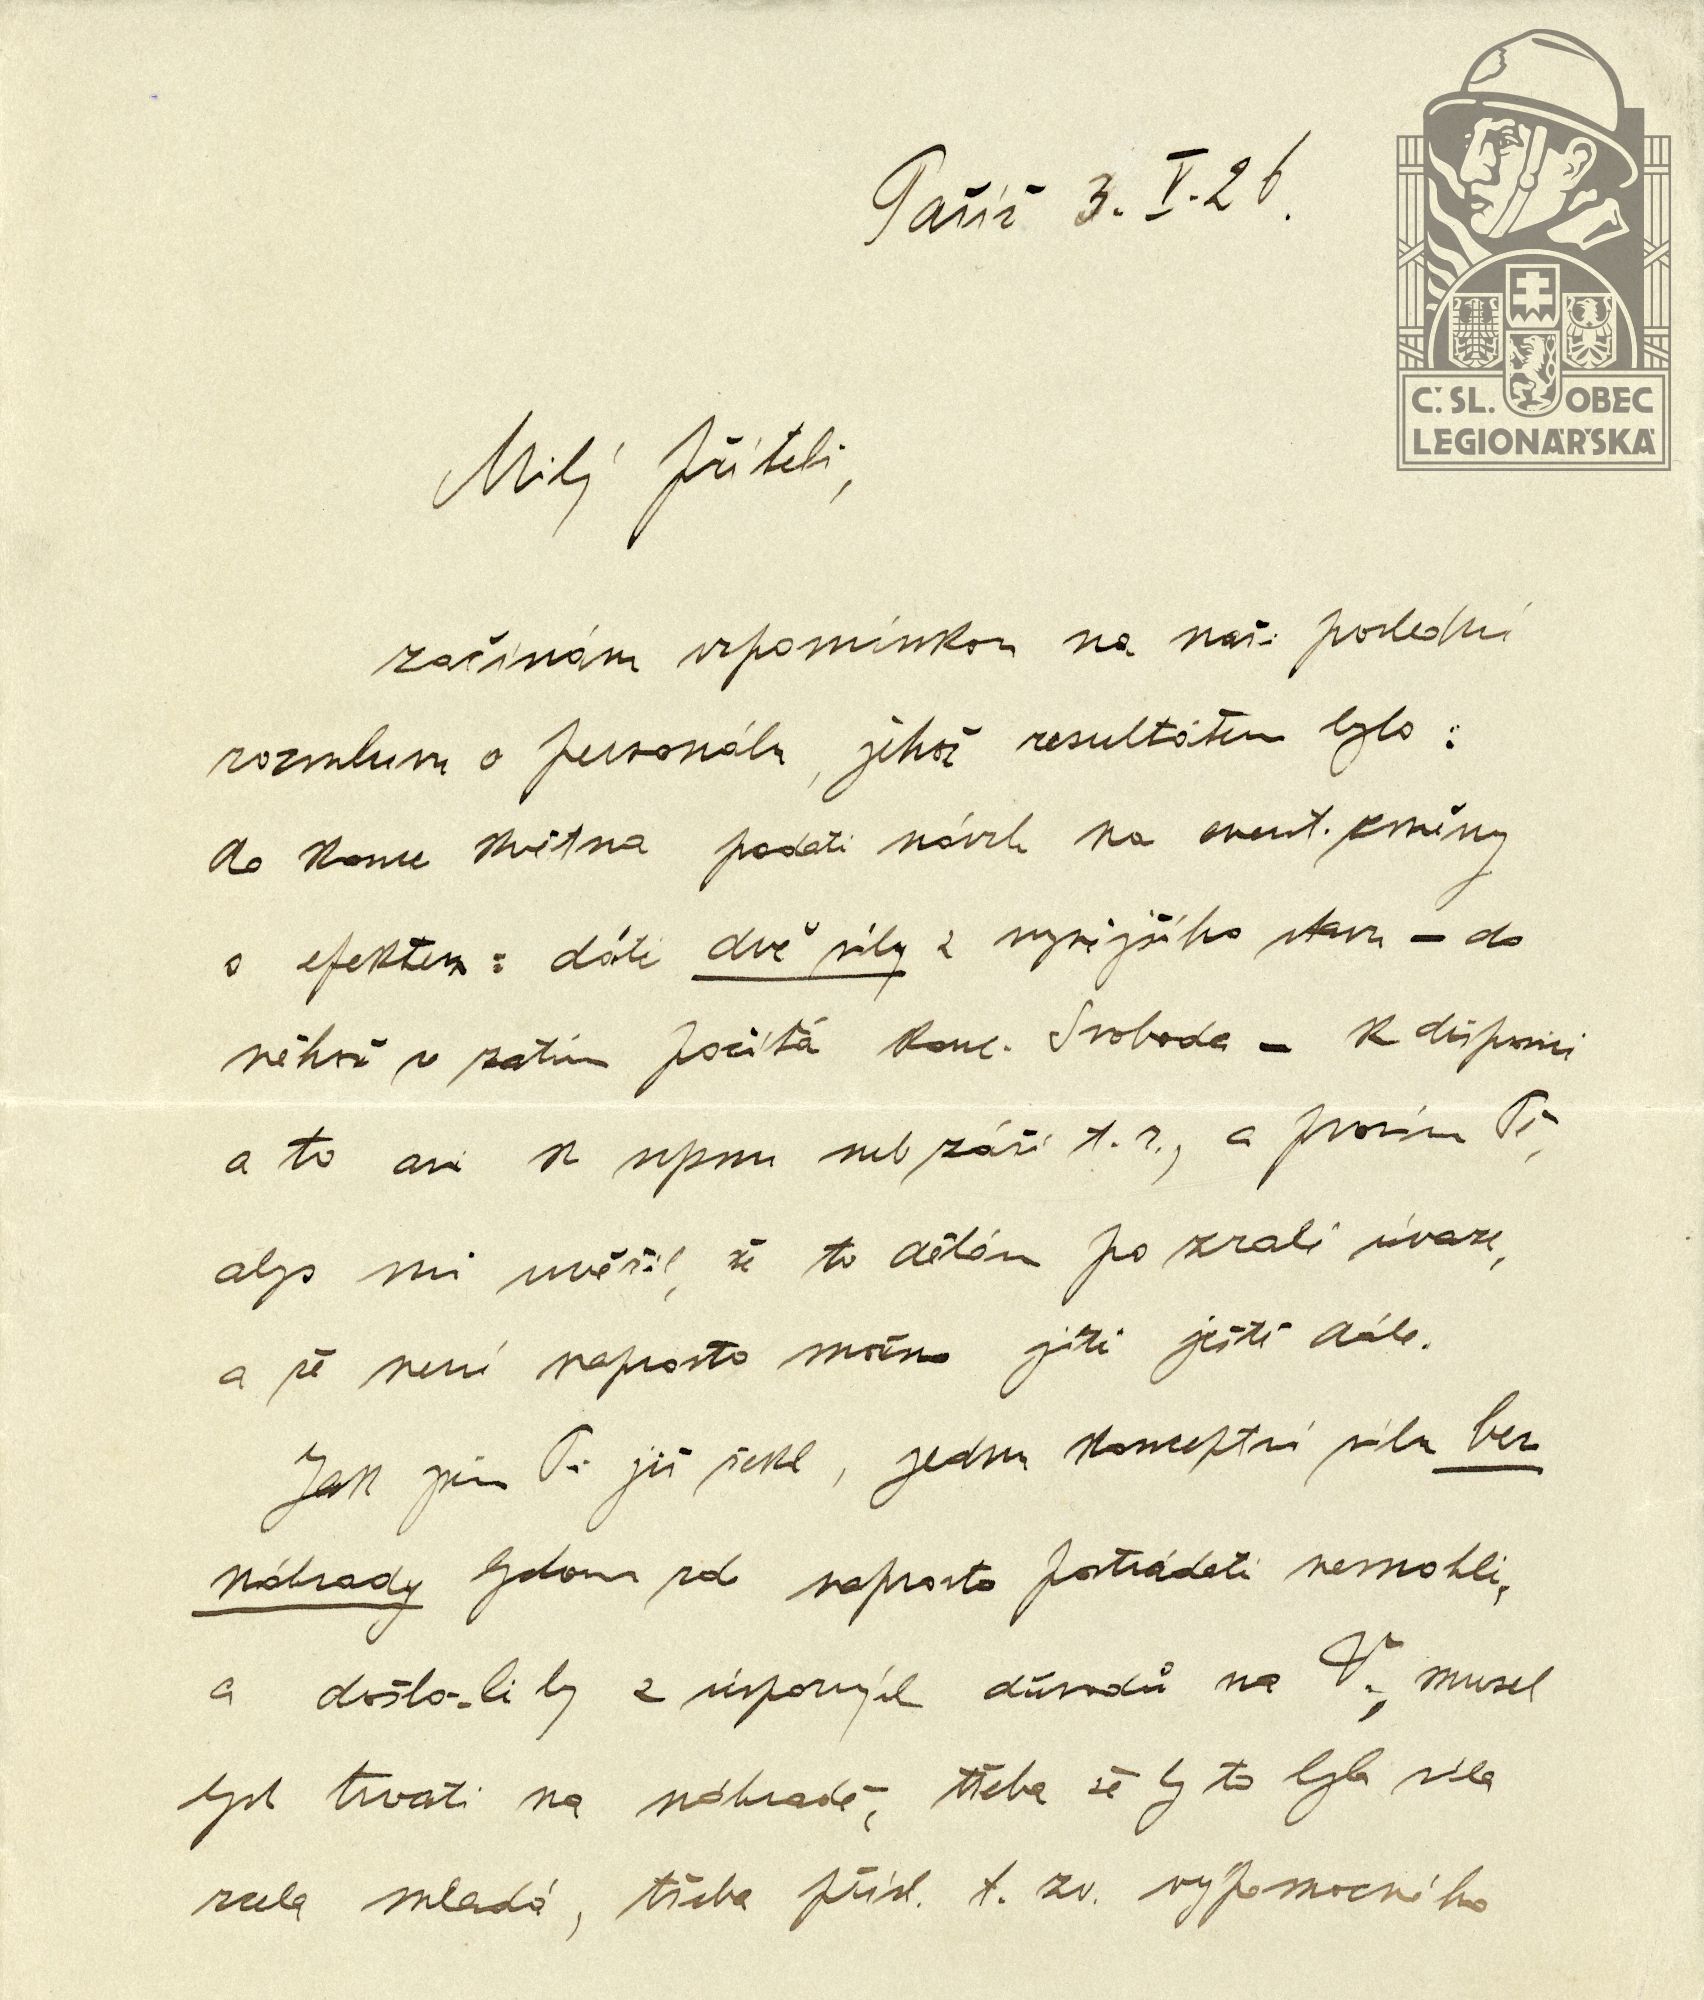 Paříž 3. V. 26.
Č. SL. OBEC
LEGIONÁŘSKÁ
Milý příteli,
začínám vzpomínkou na naši poslední
rozmluvu o personálu, jehož resultátem bylo:
do konce května podati návrh na event. změny
s efektem: dáti dvě síly z nynějšího stavu – do
něhož se zatím počítá konc. Svoboda – k disposici
a to asi k srpnu neb září t. r., a prosím Tě,
abys mi uvěřil, že to dělám po zralé úvaze,
a že není naprosto možno jíti ještě dále.
Jak jsem Ti již řekl, jednu konceptní sílu bez
náhrady bychom zde naprosto postrádati nemohli,
a došlo-li by z úsporných důvodů na V., musel
bych trvati na náhradě, třeba že by to byla síla
zcela mladá, třeba přísl. t. zv. výpomocného